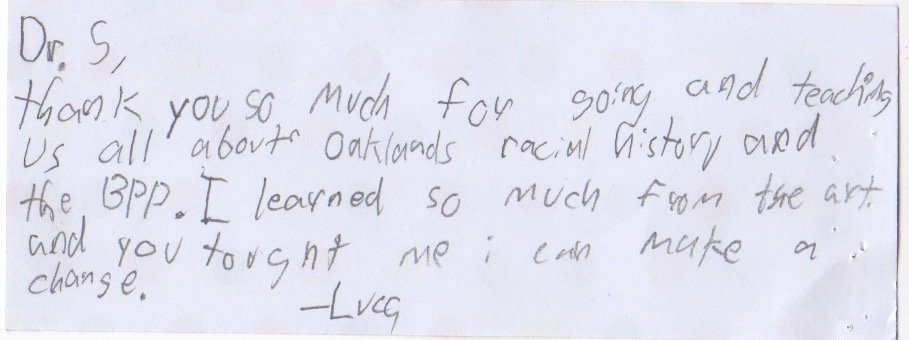 Dr. S,
thank you so much for going and teaching
us all about Oaklands racial history and
the BPP. I learned so much from the art.
and you tought me i can make a
change.
-Luca